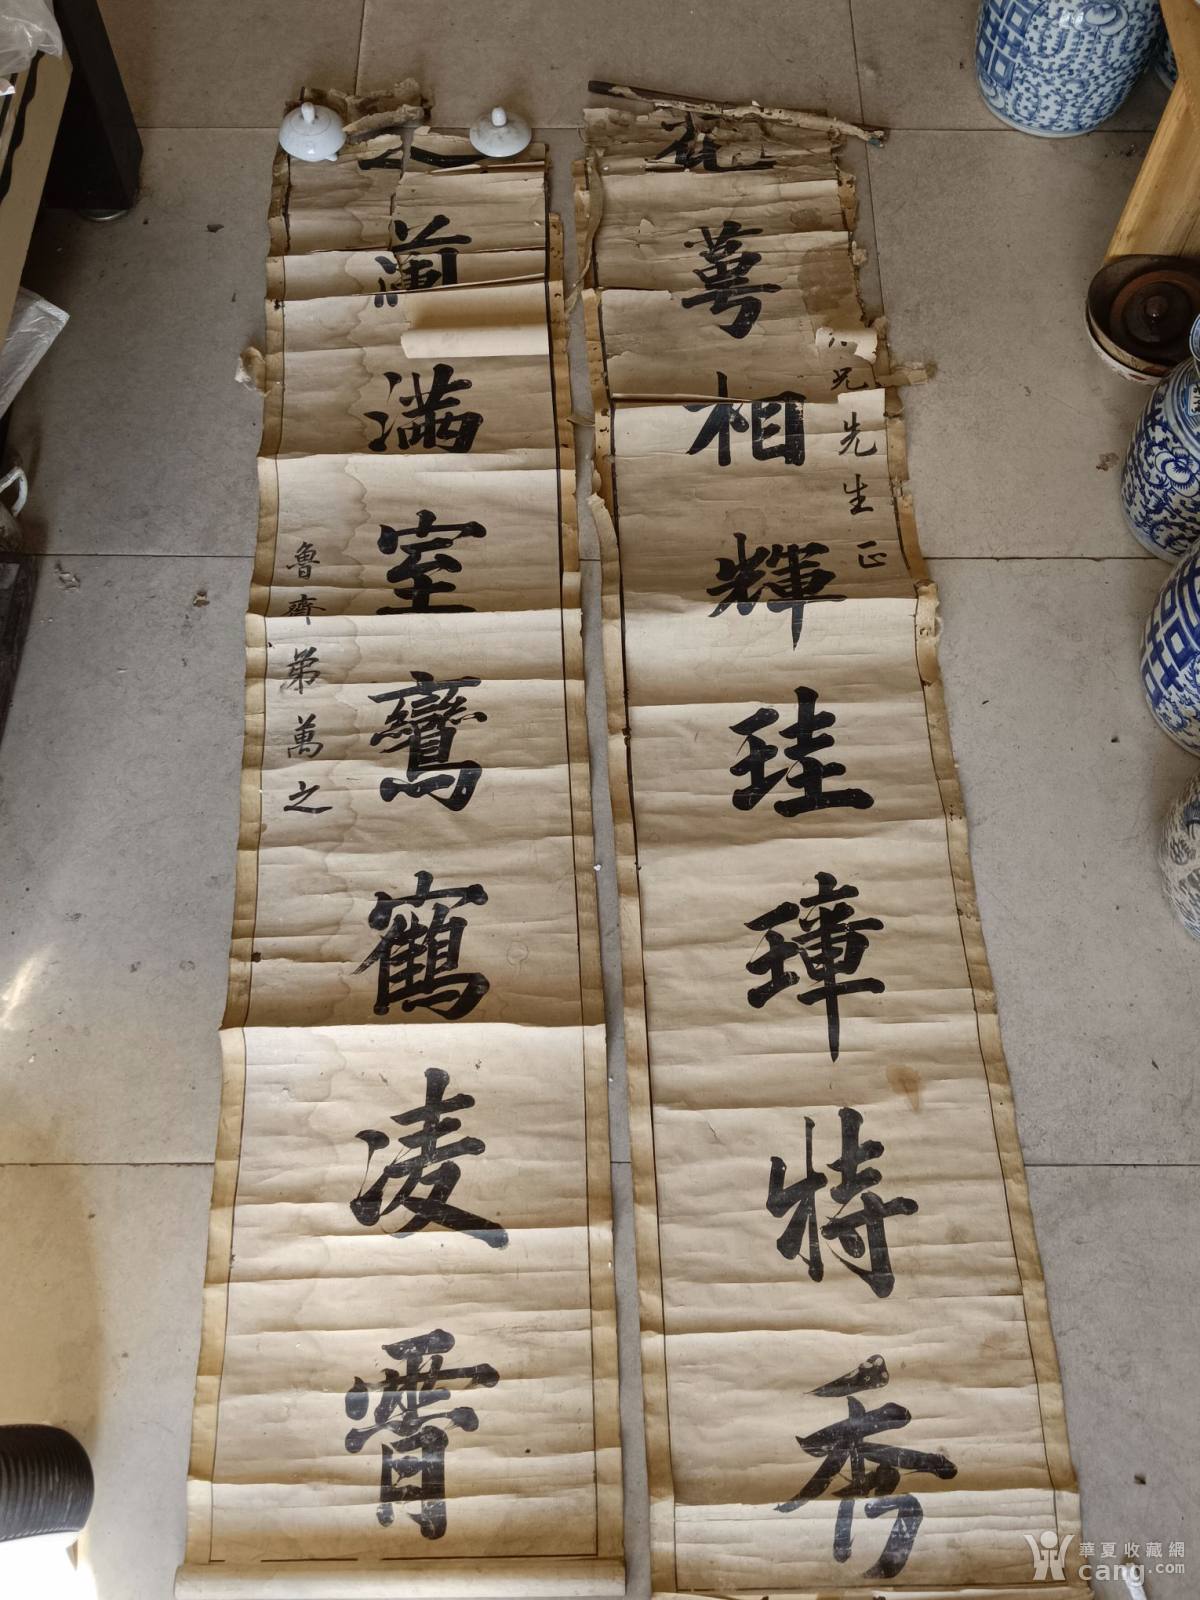 兄先生正
花萼相輝珪璋特秀
蘭滿室鸞鶴凌霄
魯齊弟萬之
華夏收藏網
cang.com